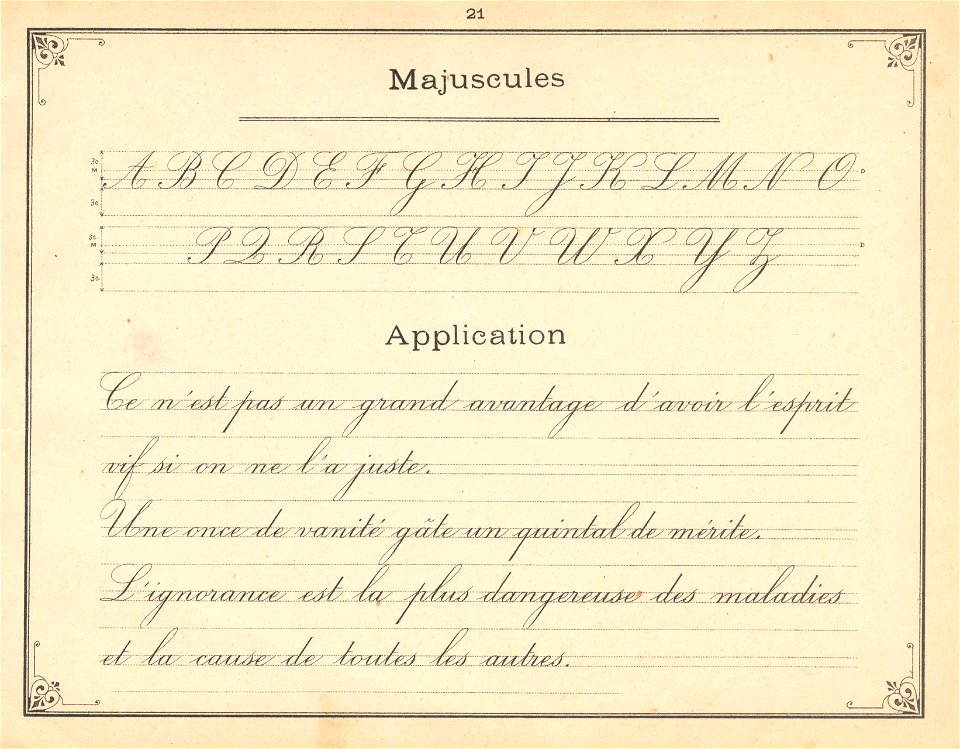 21
Majuscules
3c. M A B C D E F G H I J K L M N O D
3c.
3c. M P Q R S T U V W X Y Z D
3c.
Application
Ce n'est pas un grand avantage d'avoir l'esprit
vif si on ne l'a juste.
Une once de vanité gâte un quintal de mérite.
L'ignorance est la plus dangereuse des maladies
et la cause de toutes les autres.